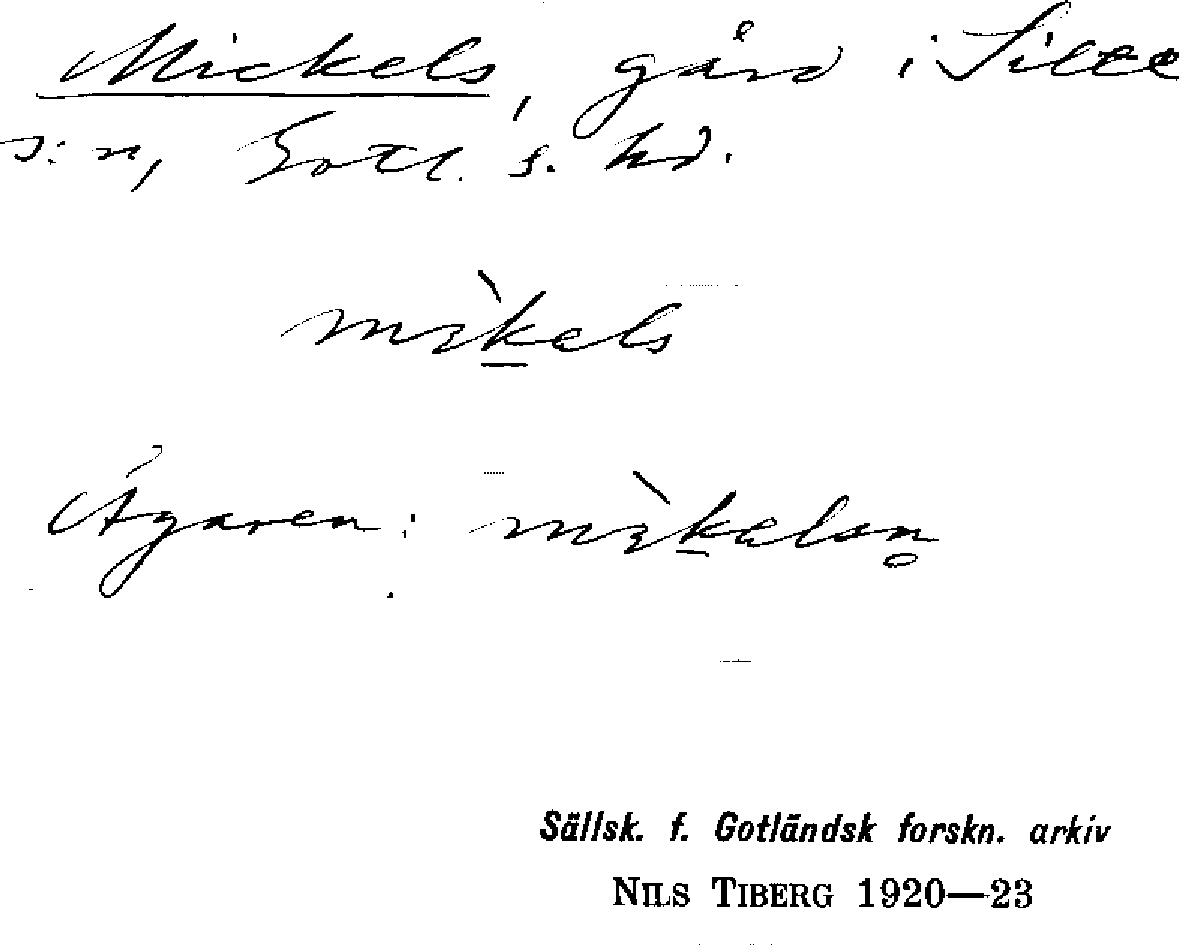 Mickels, gård i Silte
s:n, Gotl. s. hd.
mɪ̀k̲els
Ägaren: mɪ̀k̲elsn̥
Sällsk. f. Gotländsk forskn. arkiv
NILS TIBERG 1920—23